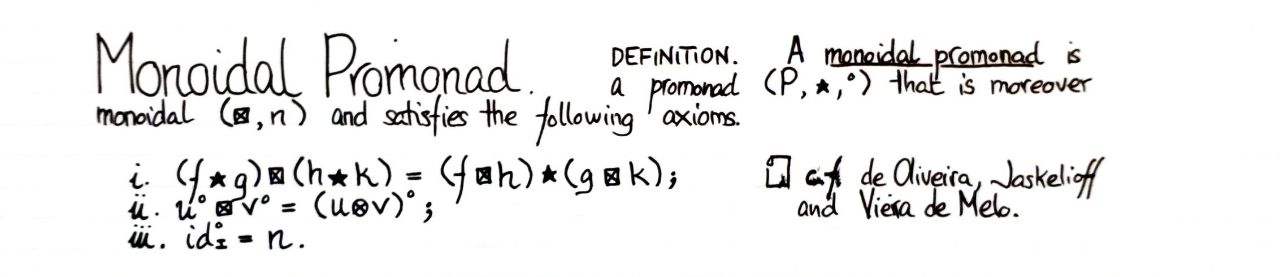 Monoidal Promonad. DEFINITION. A monoidal promonad is
a promonad (P, ⋆, °) that is moreover
monoidal (⊠, n) and satisfies the following axioms.
i. (f ⋆ g) ⊠ (h ⋆ k) = (f ⊠ h) ⋆ (g ⊠ k);
ii. u° ⊠ v° = (u ⊗ v)°;
iii. id°_I = n.
cf de Oliveira, Jaskelioff
and Viera de Melo.